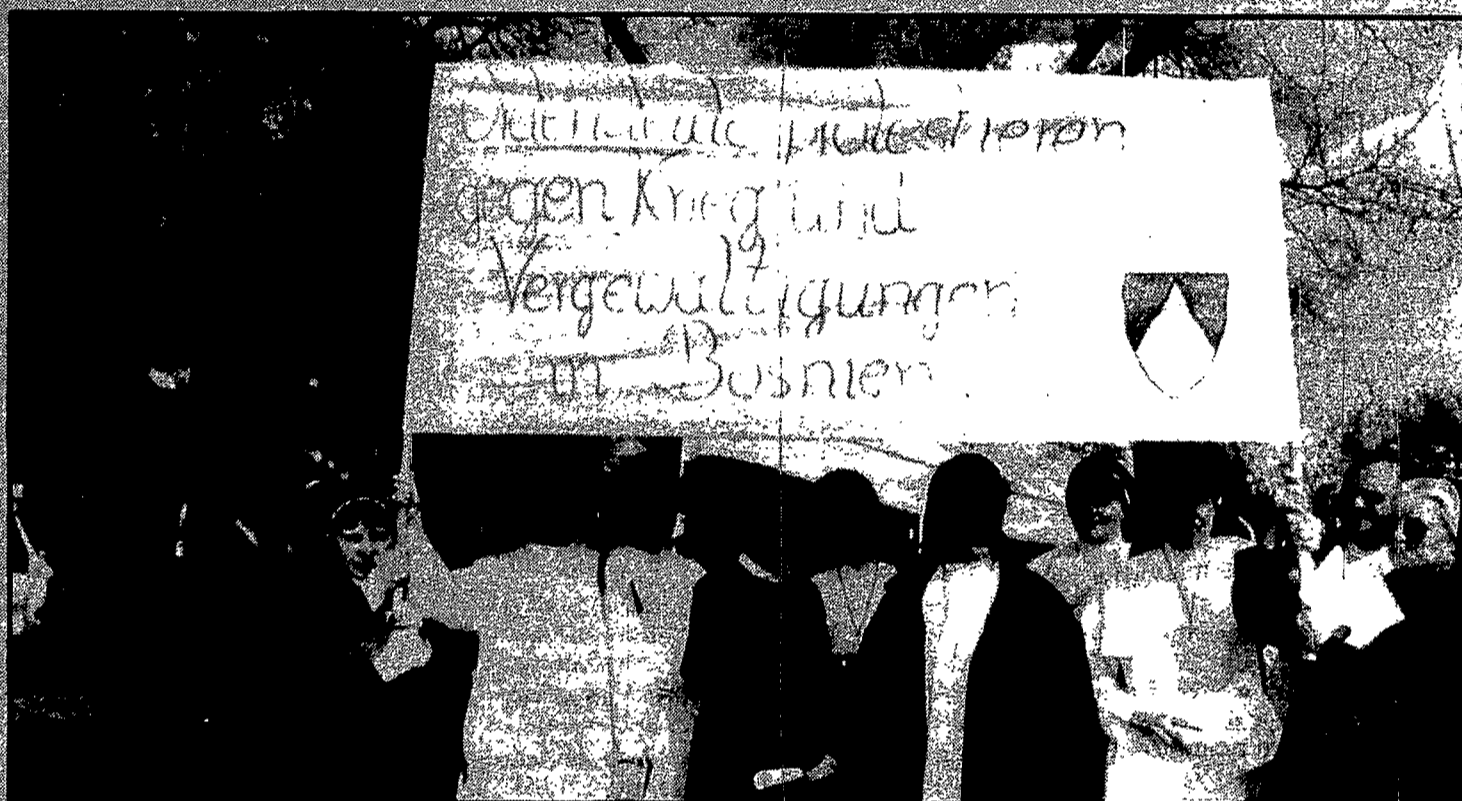 protestieren
gegen Krieg und
Vergewaltigungen
in Bosnien